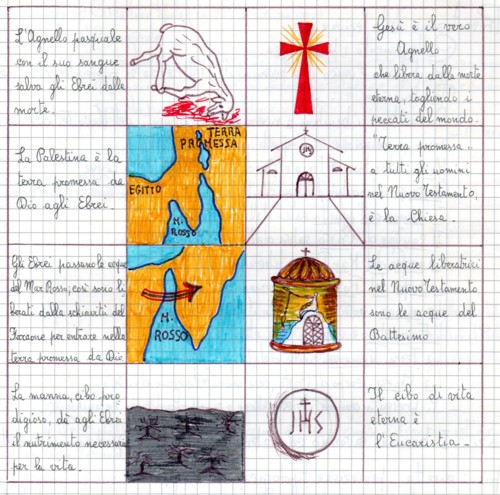 L'Agnello pasquale
con il suo sangue
salva gli Ebrei dalla
morte.
Gesù è il vero
Agnello
che libera dalla morte
eterna, togliendo i
peccati del mondo.
La Palestina è la
terra promessa da
Dio agli Ebrei.
TERRA
PROMESSA
EGITTO
M.
ROSSO
"Terra promessa"
a tutti gli uomini
nel Nuovo Testamento,
è la Chiesa.
Gli Ebrei passano le acque
del Mar Rosso, così sono li
berati dalla schiavitù del
Faraone per entrare nella
terra promessa da Dio.
M.
ROSSO
Le acque liberatrici
nel Nuovo Testamento
sono le acque del
Battesimo
La manna, cibo pro
digioso, dà agli Ebrei
il nutrimento necessario
per la vita.
JHS
Il cibo di vita
eterna è
l'Eucaristia.